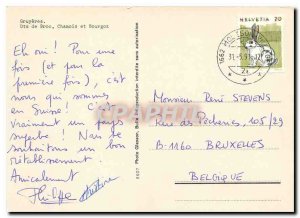 Gruyères.
Dts de Broc, Chamois et Bourgoz
HELVETIA 20
Eh oui! Pour une
fois (et pas la
première fois), c'est
nous qui sommes
en Suisse! C'est
vraiment un pays
superbe! Nous te
souhaitons un bon
rétablissement.
Amicalement
Philippe
Monsieur René STEVENS
Rue des Pêcheries, 105/29
B-1160 BRUXELLES
BELGIQUE
Photo Glasson, Bulle Reproduction interdite sans autorisation